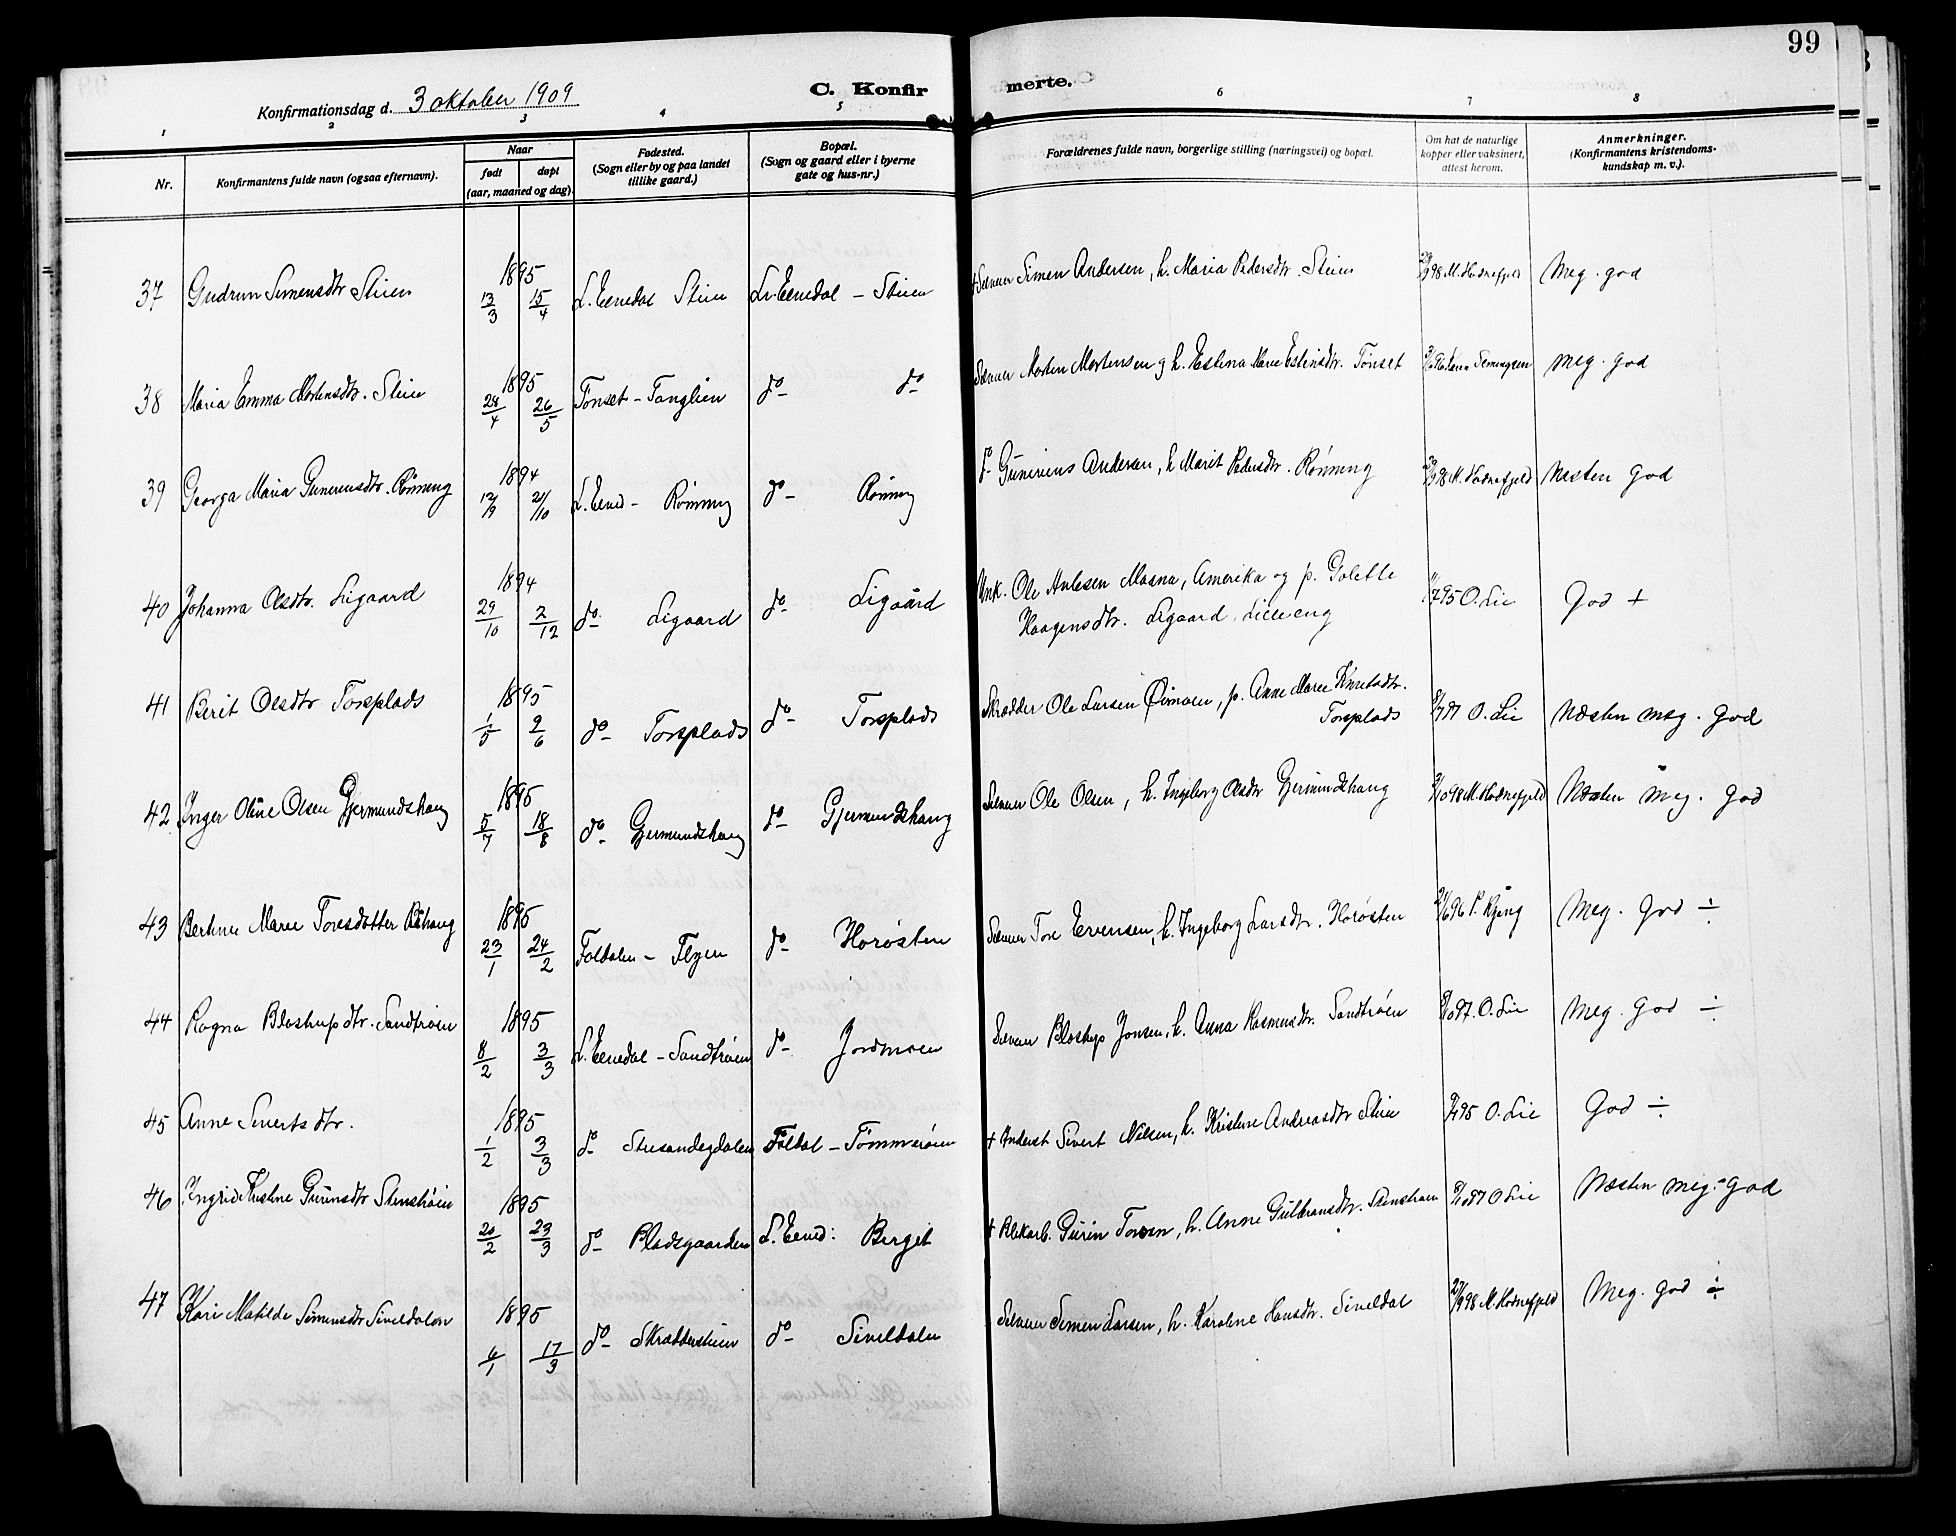 99
Konfirmationsdag d. 3 oktober 1909
C. Konfirmerte.
1 2 3 4 5 6 7 8
Nr.
Konfirmantens fulde navn (ogsaa efternavn).
Naar
født
døpt
(aar, maaned og dag).
Fødested.
(Sogn eller by og paa landet
tillike gaard.)
Bopæl.
(Sogn og gaard eller i byerne
gate og hus-nr.)
Forældrenes fulde navn, borgerlige stilling (næringsvei) og bopæl.
Om hat de naturlige
kopper eller vaksinert,
attest herom.
Anmerkninger.
(Konfirmantens kristendoms-
kundskap m. v.).
37 Gudrun Simensdtr Stien 1895 13/3 15/4 L. Elvedal Stien L. Elvedal - Stien + Selveier Simen Andersen, h. Maria Pedersdtr. Stien 98 M. Hodnefjeld Meg. god
38 Maria Emma Mortensdtr. Stien 1895 28/4 26/5 Tønset - Tanglien do do Selveier Morten Mortensen og h. Estena Marie Estensdtr. Tønset Meg. god
39 Georga Maria Guneriusdtr. Rønning 1894 12/9 21/10 L. Elved - Rønning do Rønning do Gunerius Andersen, h. Marit Pedersdtr. Rønning 98 M. Hodnefjeld Næsten god
40 Johanna Olsdtr. Ligaard 1894 29/10 2/12 do Ligaard do Ligaard Unk. Ole Amlesen Moana, Amerika og p. Golette
Haagensdtr. Ligaard, Lilleeng 95 O. Lie God +
41 Berit Olsdtr Torsplads 1895 1/5 2/6 do Torsplads do Torsplads Skrædder Ole Larsen Øimoen, p. Anne Marie
Torsplads O. Lie Næsten meg. god
42 Inger Oline Olsen Gjermundshaug 1895 5/7 18/8 do Gjermundshaug do Gjermundshaug Selveier Ole Olsen, h. Ingeborg Olsdtr Gjermundshaug 98 M. Hodnefjeld Næsten meg. god
43 Berthine Marie Toresdatter 1895 23/1 24/2 Foldalen - Flyen do Horøsten Selveier Tore Evensen, h. Ingeborg Larsdtr. Horøsten 96 P. Meg. god ÷
44 Ragna Blostrupdtr. Sandtrøen 1895 8/2 3/3 L. Elvedal - Sandtrøen do Jordmoen Selveier Blostrup Jonsen, h. Anna Rasmusdtr. Sandtrøen 97. O. Lie Meg. god ÷
45 Anne Sivertsdtr. 1895 1/2 3/3 do Strusandegdalen Foldal - Tømmerøien + Inderst Sivert Nilsen, h. Kristine Andreasdtr Stien 95 O. Lie God ÷
46 Ingrid Kristine Gurinsdtr Stenshøien 1895 20/2 23/3 do Bladsgaarden L. Elved: Berget + Blekarb. Gurin Torsen, h. Anne Gulbransdtr. Stenshøien 97 O. Lie Næsten meg. god
47 Kari Matilde Simensdtr Sivildalen 1895 6/1 17/3 do Skræddersteien do Sivildalen Selveier Simen Larsen, h. Karoline Hansdtr. Sivildal 98 M. Hodnefjeld Meg. god ÷